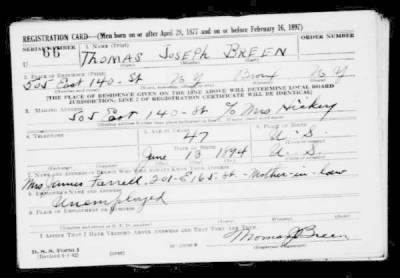 REGISTRATION CARD—(Men born on or after April 28, 1877 and on or before February 16, 1897)
SERIAL NUMBER 1. NAME (Print) ORDER NUMBER
U 66 THOMAS JOSEPH BREEN
2. PLACE OF RESIDENCE (Print)
505 East 140-St N.Y. Bronx N.Y.
[THE PLACE OF RESIDENCE GIVEN ON THE LINE ABOVE WILL DETERMINE LOCAL BOARD
JURISDICTION; LINE 2 OF REGISTRATION CERTIFICATE WILL BE IDENTICAL]
3. MAILING ADDRESS
505 East 140-St c/o Mrs Hickey
4. TELEPHONE 5. AGE IN YEARS 6. PLACE OF BIRTH
47 U.S.
DATE OF BIRTH
June 13 1894 U.S.
7. NAME AND ADDRESS OF PERSON WHO WILL ALWAYS KNOW YOUR ADDRESS
Mrs James Farrell, 201-E 165-St - Mother-in-law
8. EMPLOYER'S NAME AND ADDRESS
Unemployed
9. PLACE OF EMPLOYMENT OR BUSINESS
I AFFIRM THAT I HAVE VERIFIED ABOVE ANSWERS AND THAT THEY ARE TRUE.
D. S. S. Form 1
(Revised 4-1-42)
Thomas J Breen